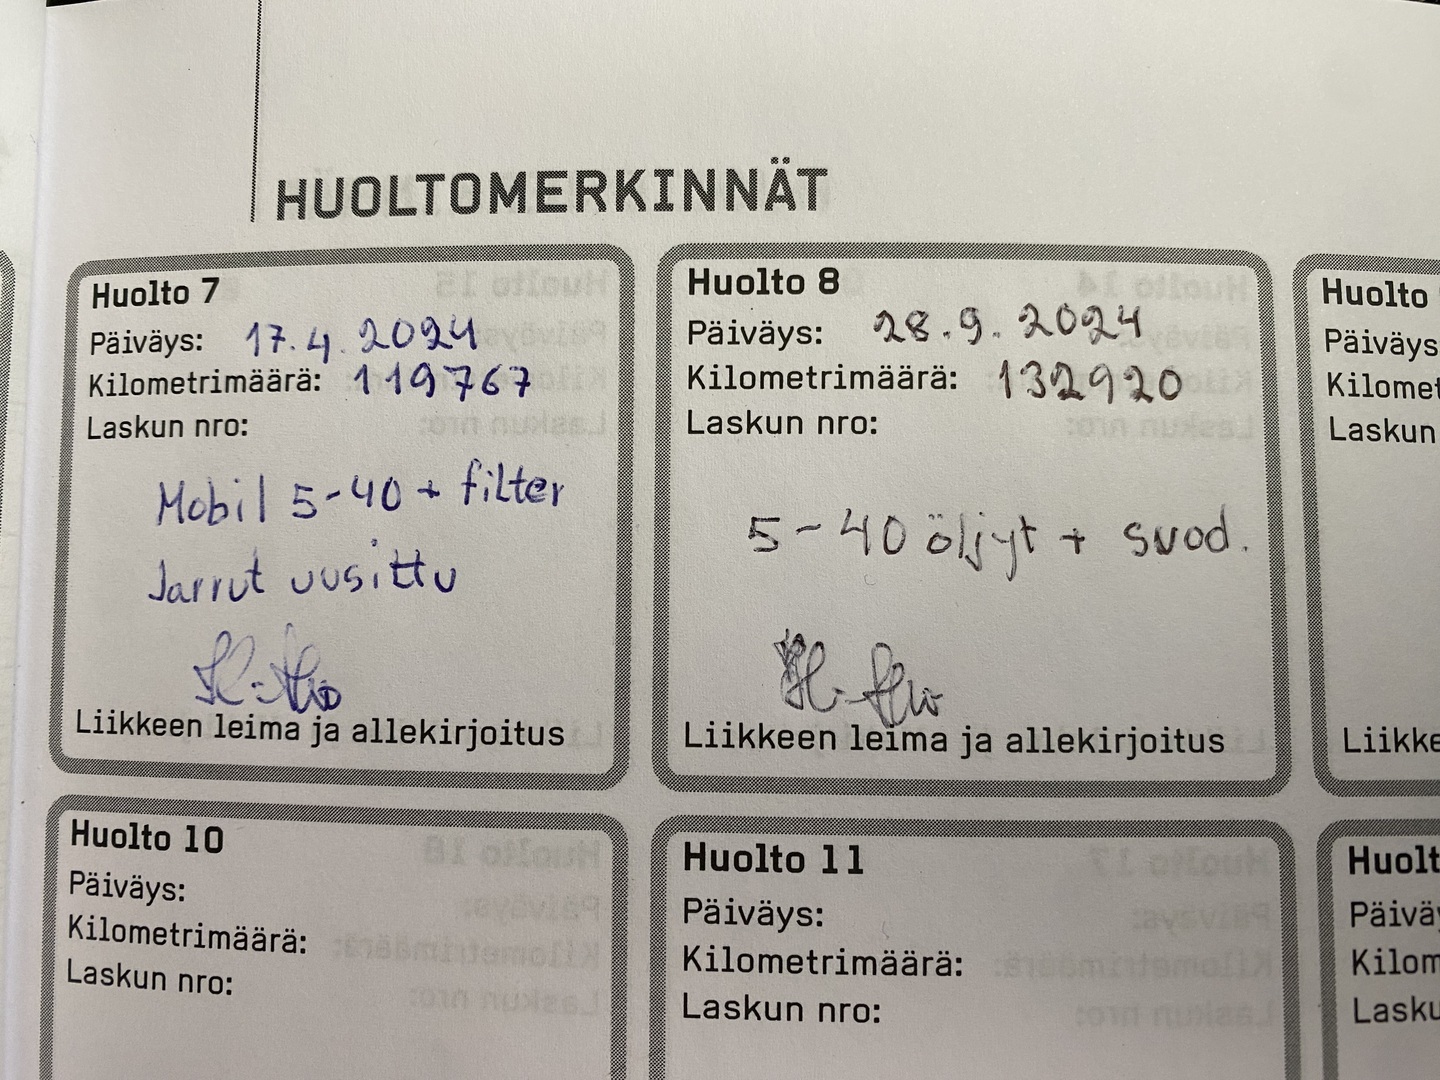 HUOLTOMERKINNÄT
Huolto 7
Päiväys: 17.4.2024
Kilometrimäärä: 119767
Laskun nro:
Mobil 5-40 + filter
Jarrut uusittu
Liikkeen leima ja allekirjoitus
Huolto 8
Päiväys: 28.9.2024
Kilometrimäärä: 132920
Laskun nro:
5-40 öljyt + suod.
Liikkeen leima ja allekirjoitus
Huolto
Päiväys
Kilomet
Laskun
Liikke
Huolto 10
Päiväys:
Kilometrimäärä:
Laskun nro:
Huolto 11
Päiväys:
Kilometrimäärä:
Laskun nro:
Huolt
Päivä
Kilom
Lasku